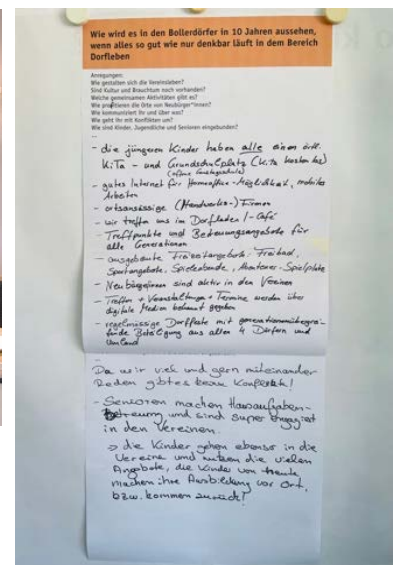 Wie wird es in den Bollerdörfer in 10 Jahren aussehen,
wenn alles so gut wie nur denkbar läuft in dem Bereich
Dorfleben
Anregungen:
Wie gestalten sich die Vereinsleben?
Sind Kultur und Brauchtum noch vorhanden?
Welche gemeinsamen Aktivitäten gibt es?
Wie profitieren die Orte von Neubürger*innen?
Wie kommuniziert ihr und über was?
Wie geht ihr mit Konflikten um?
Wie sind Kinder, Jugendliche und Senioren eingebunden?
- die jüngeren Kinder haben alle einen örtl.
KiTa - und Grundschulplatz (Kita kostenlos)
(offene Ganztagsschule)
- gutes Internet für Homeoffice-Möglichkeit, mobiles
Arbeiten
- ortsansässige (Handwerks-) Firmen
- wir treffen uns im Dorfladen / - Café
- Treffpunkte und Betreuungsangebote für
alle Generationen
- ausgebaute Freizeitangebote: Freibad,
Sportangebote, Spieleabende, Abenteuer-Spielplatz
- Neubürgerinnen sind aktiv in den Vereinen
- Treffen + Veranstaltungen + Termine werden über
digitale Medien bekannt gegeben
- regelmässige Dorffeste mit generationenübergrei-
fende Beteiligung aus allen 4 Dörfern und
Umland
Da wir viel und gern miteinander
Reden gibt es keine Konflikte!
- Senioren machen Hausaufgaben-
betreuung und sind super engagiert
in den Vereinen.
→ die Kinder gehen ebenso in die
Vereine und nutzen die vielen
Angebote, die Kinder von heute
machen ihre Ausbildung vor Ort.
bzw. kommen zurück!